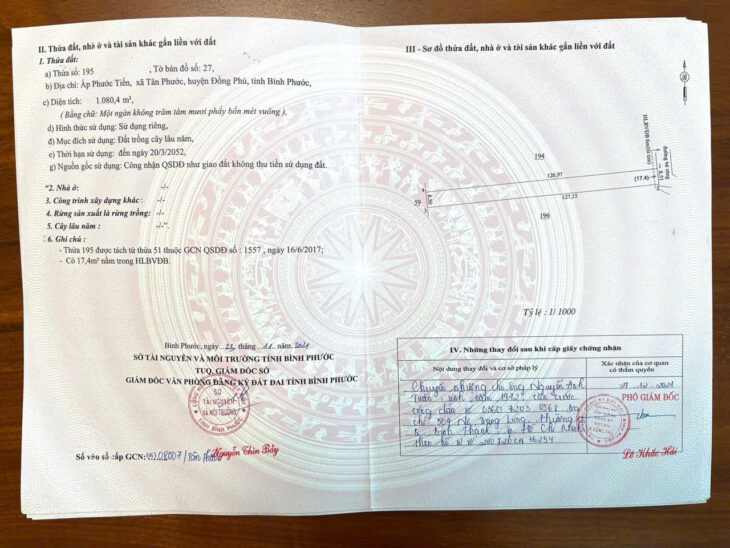 II. Thửa đất, nhà ở và tài sản khác gắn liền với đất
1. Thửa đất:
a) Thửa số: 195 , Tờ bản đồ số: 27,
b) Địa chỉ: Ấp Phước Tiến, xã Tân Phước, huyện Đồng Phú, tỉnh Bình Phước,
c) Diện tích: 1.080,4 m²,
( Bằng chữ: Một ngàn không trăm tám mươi phẩy bốn mét vuông) ,
d) Hình thức sử dụng: Sử dụng riêng,
đ) Mục đích sử dụng: Đất trồng cây lâu năm,
e) Thời hạn sử dụng: đến ngày 20/3/2052,
g) Nguồn gốc sử dụng: Công nhận QSDĐ như giao đất không thu tiền sử dụng đất.
*2. Nhà ở: -/-
3. Công trình xây dựng khác : -/-
4. Rừng sản xuất là rừng trồng: -/-
5. Cây lâu năm : -/-
6. Ghi chú :
- Thửa 195 được tách từ thửa 51 thuộc GCN QSDĐ số : 1557 , ngày 16/6/2017;
- Có 17,4m² nằm trong HLBVĐB.
Bình Phước, ngày 23 tháng 11 năm 2021
SỞ TÀI NGUYÊN VÀ MÔI TRƯỜNG TỈNH BÌNH PHƯỚC
TUQ. GIÁM ĐỐC SỞ
GIÁM ĐỐC VĂN PHÒNG ĐĂNG KÝ ĐẤT ĐAI TỈNH BÌNH PHƯỚC
SỞ
TÀI NGUYÊN
VÀ MÔI TRƯỜNG
TỈNH BÌNH PHƯỚC
Nguyễn Thìn Bảy
Số vào sổ cấp GCN:
III - Sơ đồ thửa đất, nhà ở và tài sản khác gắn liền với đất
194
126,97
(17.4)
8.51
đường bê tông
4
59
8.50
127,15
196
Tỷ lệ : 1/ 1000
IV. Những thay đổi sau khi cấp giấy chứng nhận
Nội dung thay đổi và cơ sở pháp lý
Xác nhận của cơ quan có thẩm quyền
Chuyển nhượng cho ông Nguyễn Anh
Tuấn, sinh năm căn cước
công dân số
chỉ
Bình Thạnh, tp. Hồ Chí Minh
theo hồ sơ số
PHÓ GIÁM ĐỐC
Lê Khắc Hải